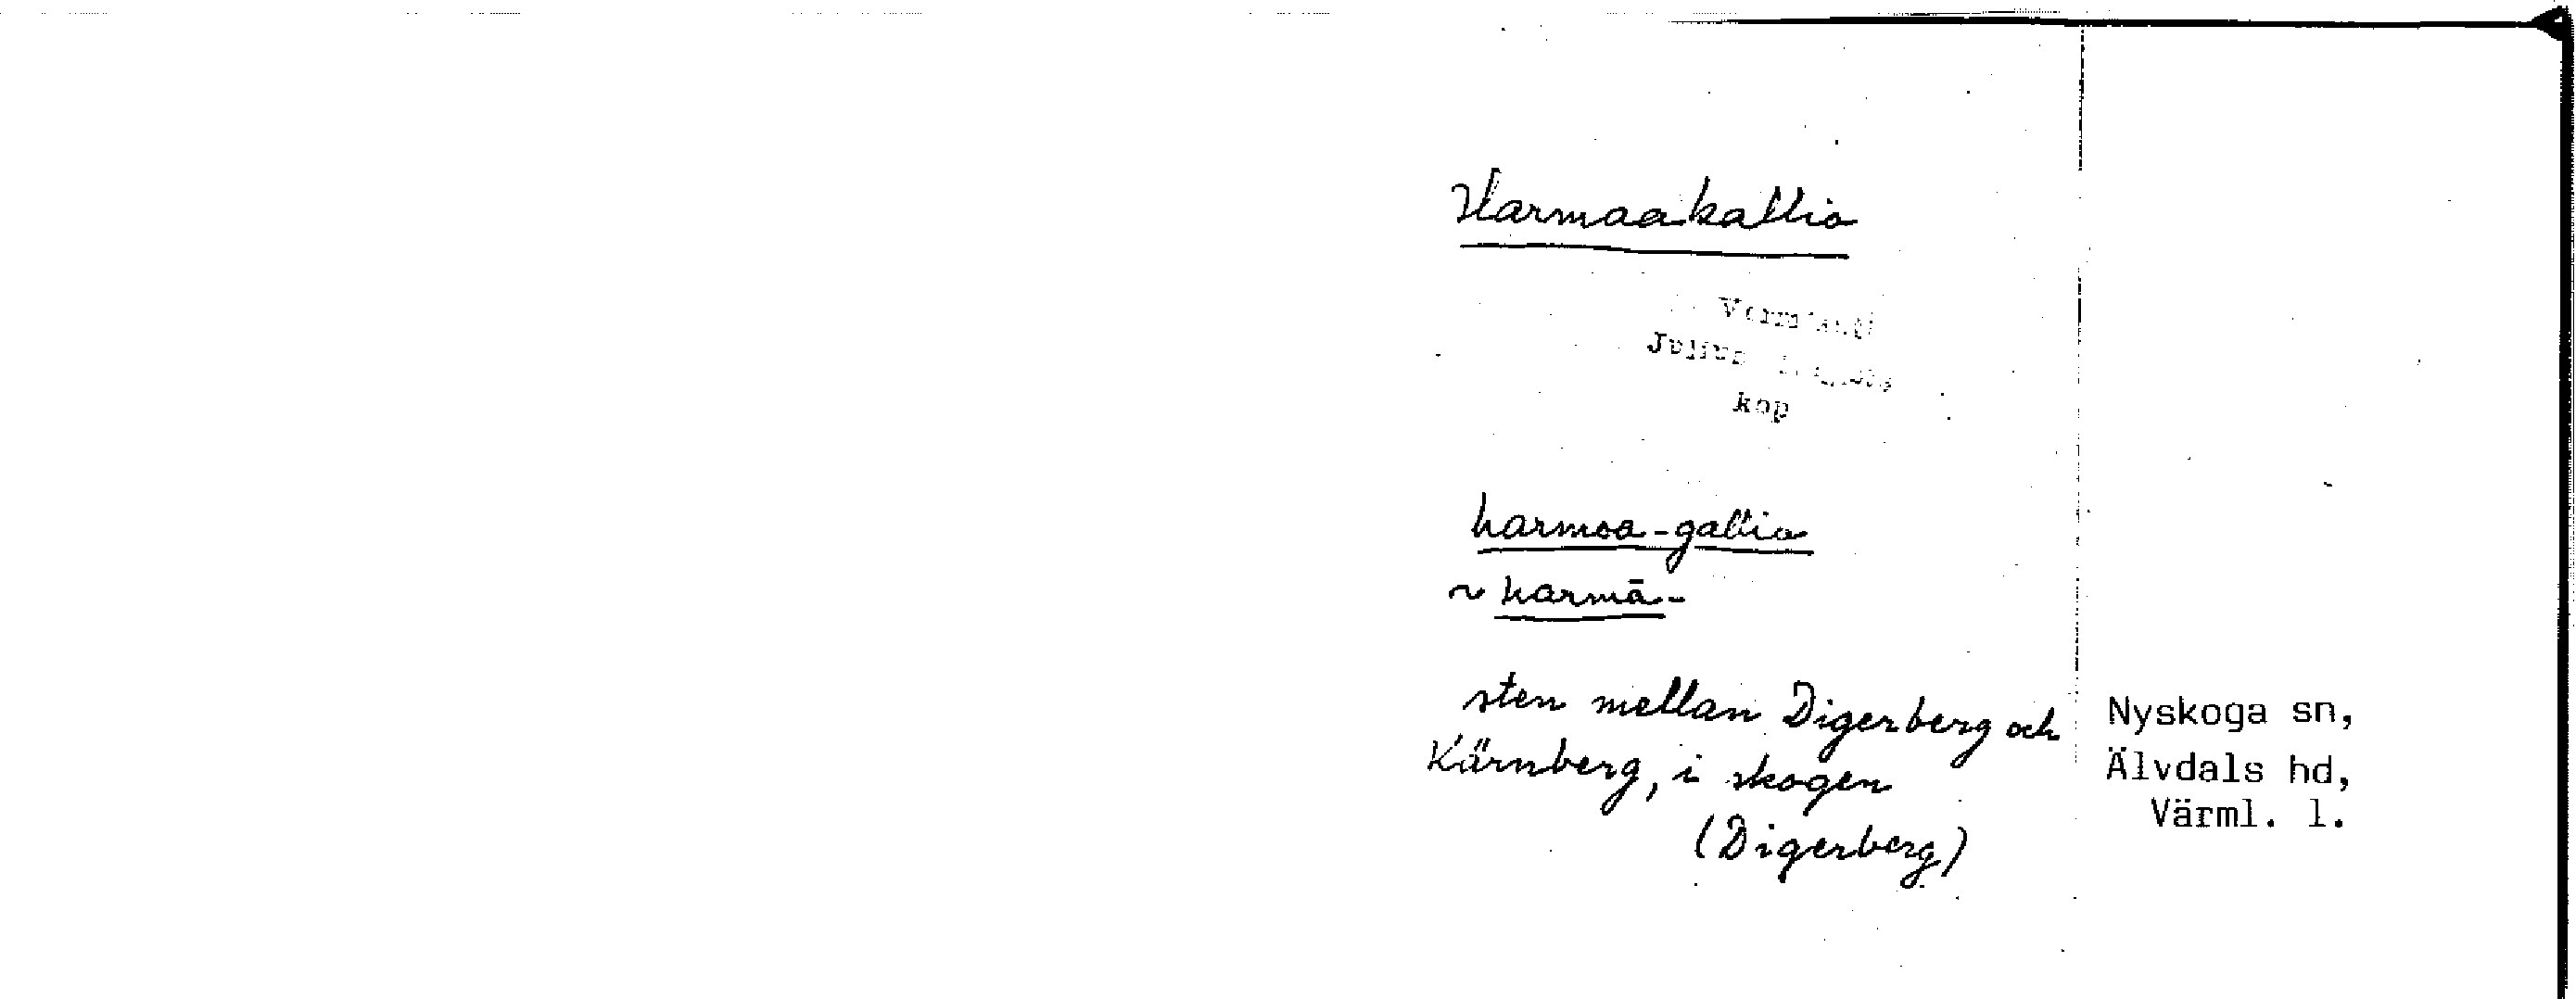 Harmaakallio
Julius
kop
harmoa-gallio
~ harmā-
sten mellan Digerberg och
Kärnberg, i skogen
(Digerberg)
Nyskoga sn,
Älvdals hd,
Värml. l.